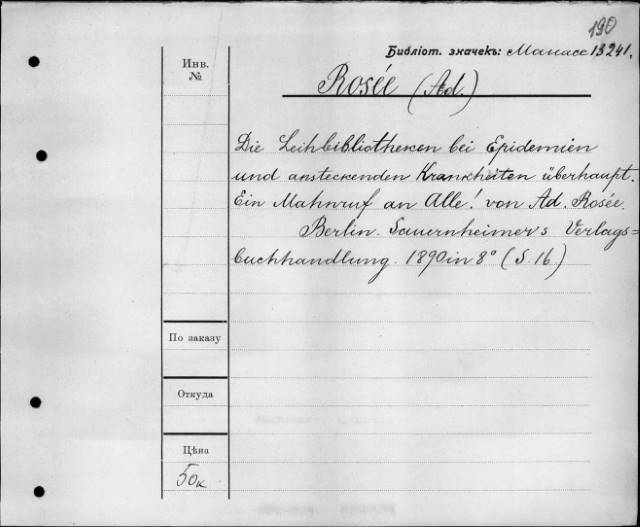 190
Библіот. значекъ: Манасс 13241.
Инв.
№
Rosée (Ad.)
Die Leihbibliotheken bei Epidemien
und ansteckenden Krankheiten überhaupt.
Ein Mahnruf an Alle! von Ad. Rosée.
Berlin. Sauernheimer's Verlags=
buchhandlung. 1890 in 8° (S. 16.)
По заказу
Откуда
Цѣна
50 к